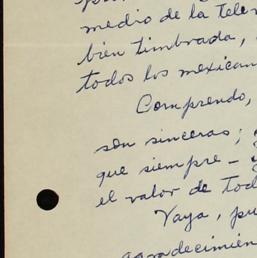 medio de la telev
bien timbrada,
todos los mexican
Comprendo,
son sinceras;
que siempre –
el valor de tod
Vaya, pu
agradecimien